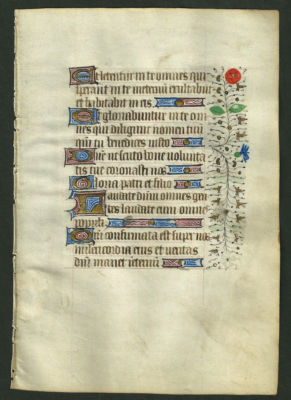 Et letentur in te omnes qui
sperant in te in eternū exultabūt
et habitabit in eis
Et gloriabuntur in te om
nes qui diligunt nomen tuū
qm̄ tu benedices iusto
Dn̄e ut scuto bone volunta
tis tue coronasti nos
Gloria patri et filio
Laudate dn̄m omnes gen
tes laudate eum omnes
populi
Qm̄ confirmata est supr̄ nos
misericordia eius et veritas
dn̄i manet in eternū